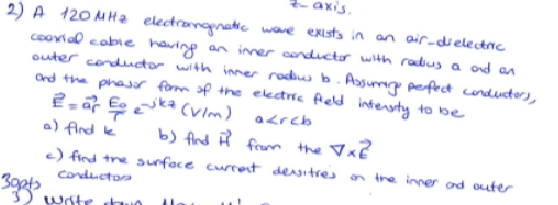 z-axis.
2) A 120 MHz electromagnetic wave exists in an air-dielectric
coaxial cable having an inner conductor with radius a and an
outer conductor with inner radius b. Assuming perfect conductors,
and the phasor form of the electric field intensity to be
E⃗ = a⃗r E₀/r e^-jkz (V/m) a<r<b
a) find k b) find H⃗ from the ∇×E⃗
c) find the surface current densities on the inner and outer
conductors
30pts
3) Write down